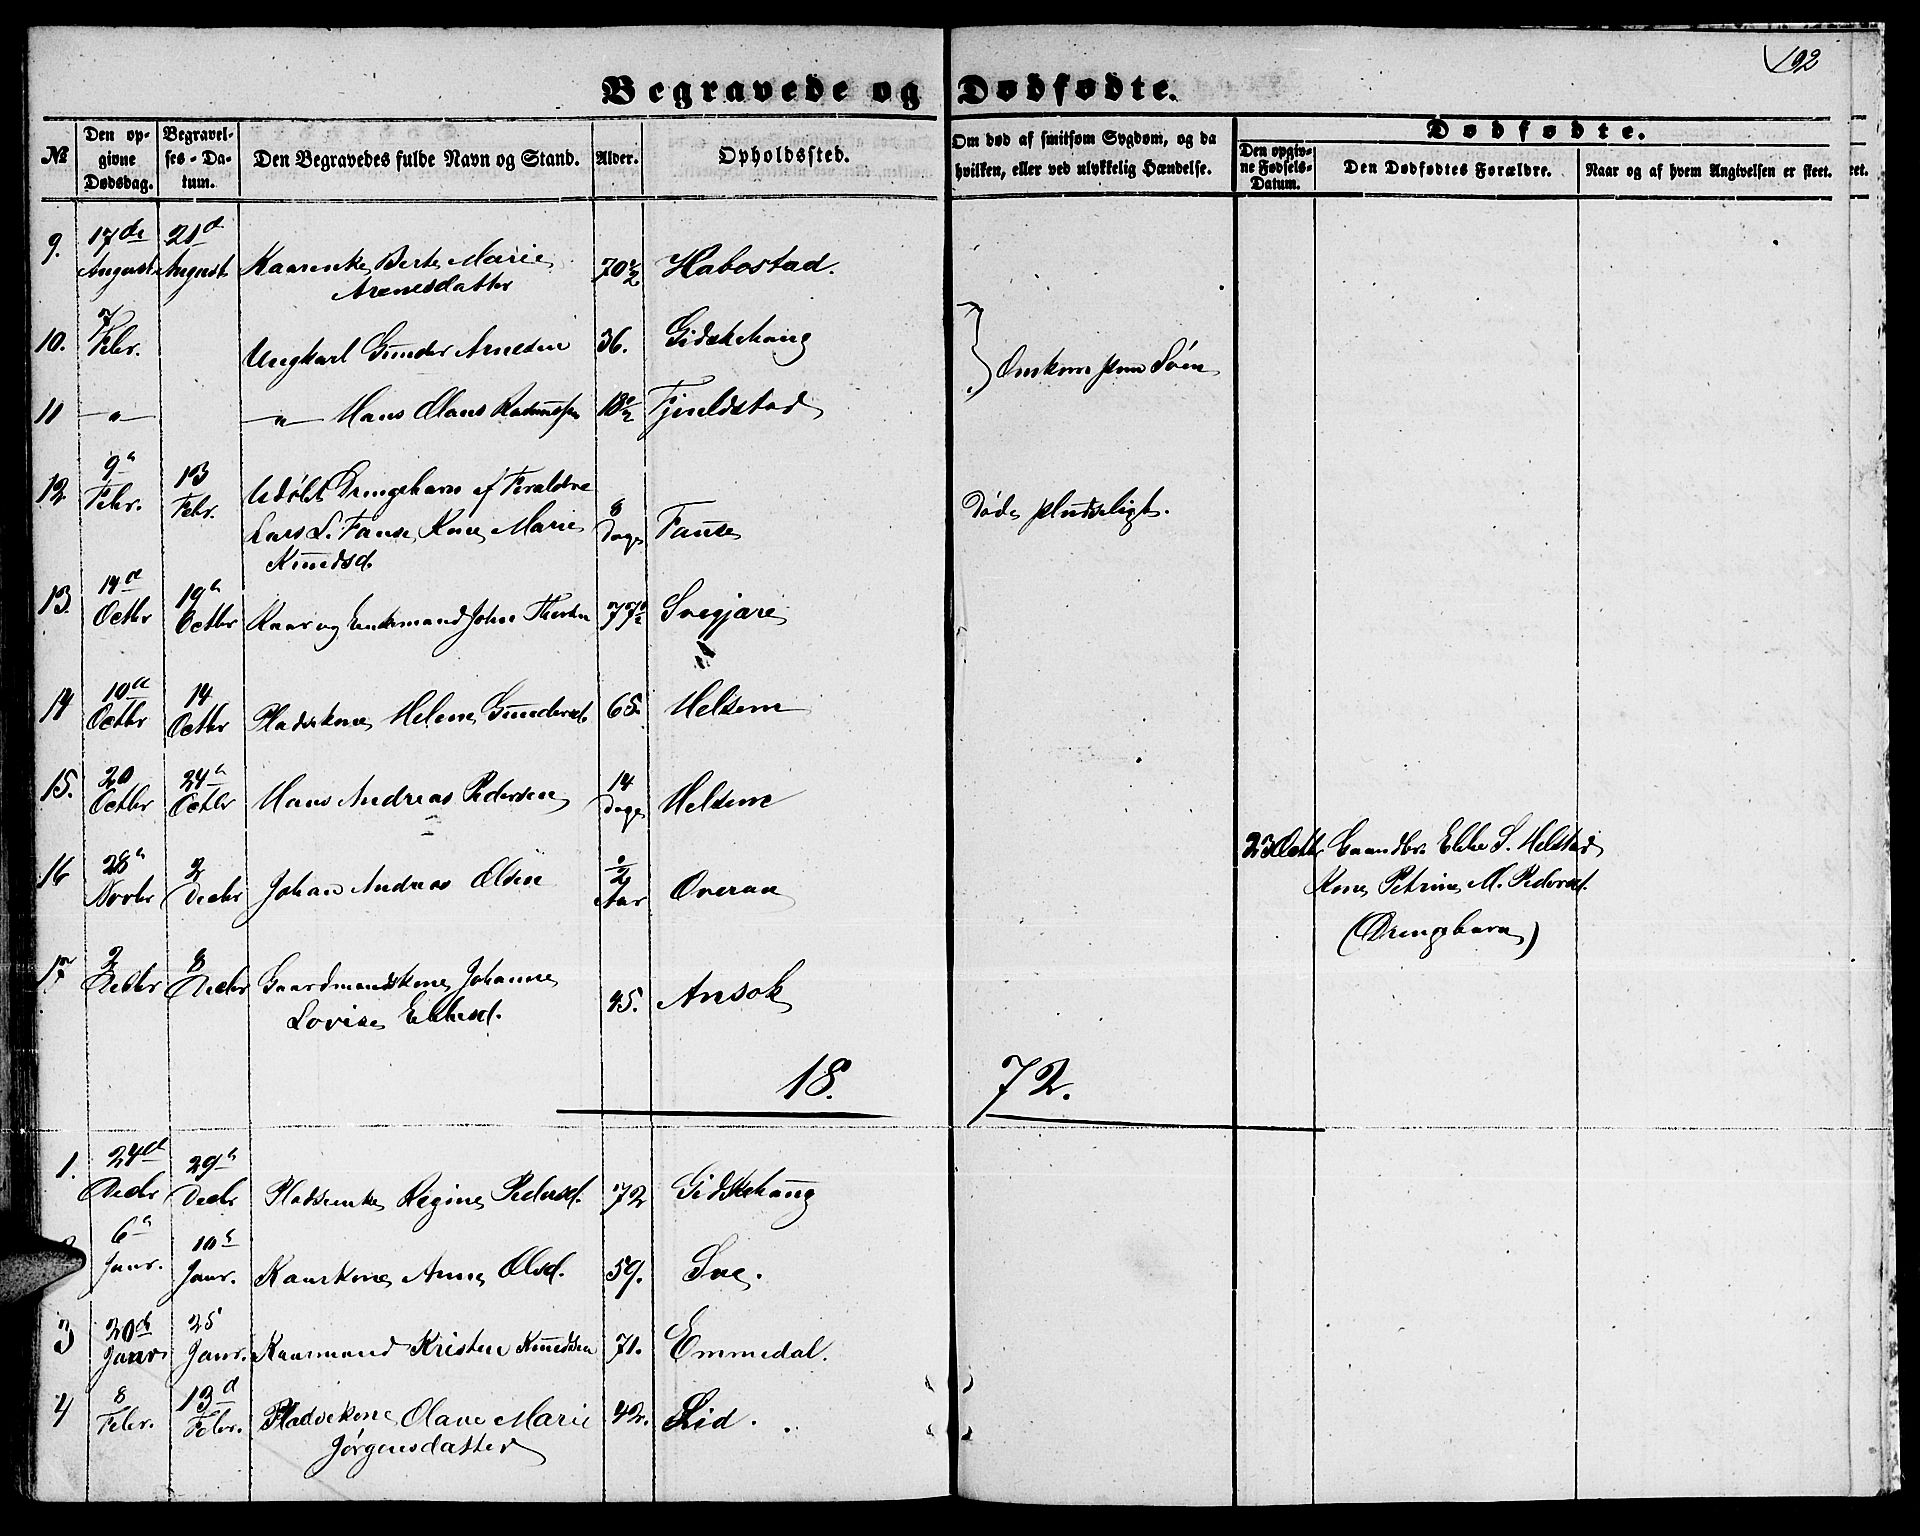 192
Begravede og Dødfødte.
№
Den opgivne Dødsdag.
Begravelses-Datum.
Den Begravedes fulde Navn og Stand.
Alder.
Opholdssted.
Om død af smitsom Sygdom, og da hvilken, eller ved ulykkelig Hændelse.
Dødfødte.
Den opgivne Fødsels-Datum.
Den Dødfødtes Forældre.
Naar og af hvem Angivelsen er skeet.
9. 17de August 21d August Kaarenke Berte Marie 70½ Habostad.
Arenesdatter
10. 7 Febr. Ungkarl Gunder Arnesen 36. Gidskehaug
Omkom paa Søen
11 —"— —"— Hans Olaus Rasmussen 18½ Fjeldstad
12 9" Febr. 13 Febr. Udøbt Drengebarn af Foraldre
Lars L. Fause, Kone Marie 8 Dage Fause Døde pludseligt.
Knudsd.
13. 14d Octbr 19" Octbr Kaar og Enkemand John 77½ Svegjare
14 10d Octbr 14 Octbr Pladsekone Helene Gundersd. 65. Helsem
15. 20 Octbr 24" Octbr Hans Andreas Pedersen 14 Dage Helsem
23 Octbr Gaardbr. Elke S. Helstad
Kone Petrine M. Pedersd.
(Drengebarn)
16 28" Novbr 2 Decbr Johan Andreas Olsen ½ Aar Overaa
17 2 Decbr 8 Decbr Gaardmandskone Johanne 45. Ansok
Lovise Elkesd.
18 72.
1. 24d Decbr 29" Decbr Pladsenke Regine Pedersd. 72 Gidskehaug
6" Janr. 10" Janr. Kaarkone Anne Olsd. 59. Sve.
3 20d Janr 25 Janr. Kaarmand Kristen Knudsen 71. Emmedal.
4 8 Febr. 13d Febr. Pladsekone Olave Marie 42. Lid.
Jørgensdatter